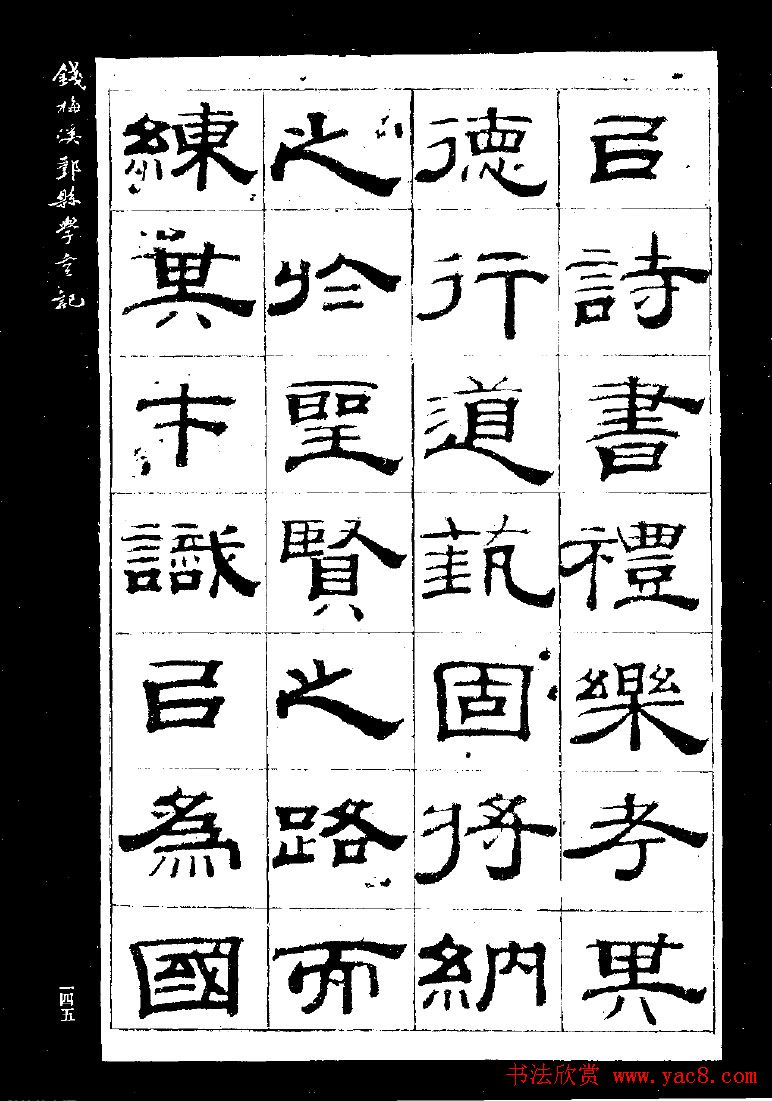 㠯詩書禮樂考其
德行道蓺固將納
之於聖賢之路而
練其才識㠯為國
錢梅溪鄞縣學記
一四五
书法欣赏 www.yac8.com